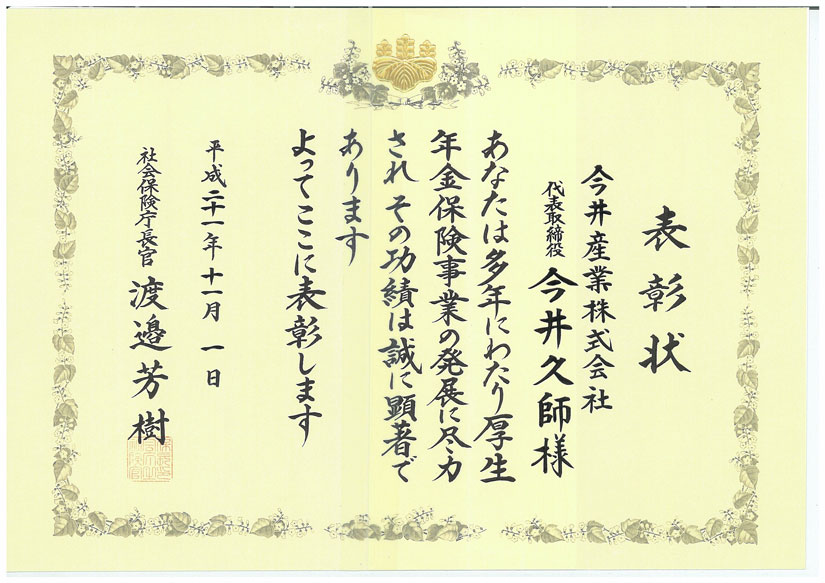 表彰状
今井産業株式会社
代表取締役 今井久師様
あなたは多年にわたり厚生
年金保険事業の発展に尽力
され その功績は誠に顕著で
あります
よってここに表彰します
平成二十一年十一月 一 日
社会保険庁長官 渡邉芳樹